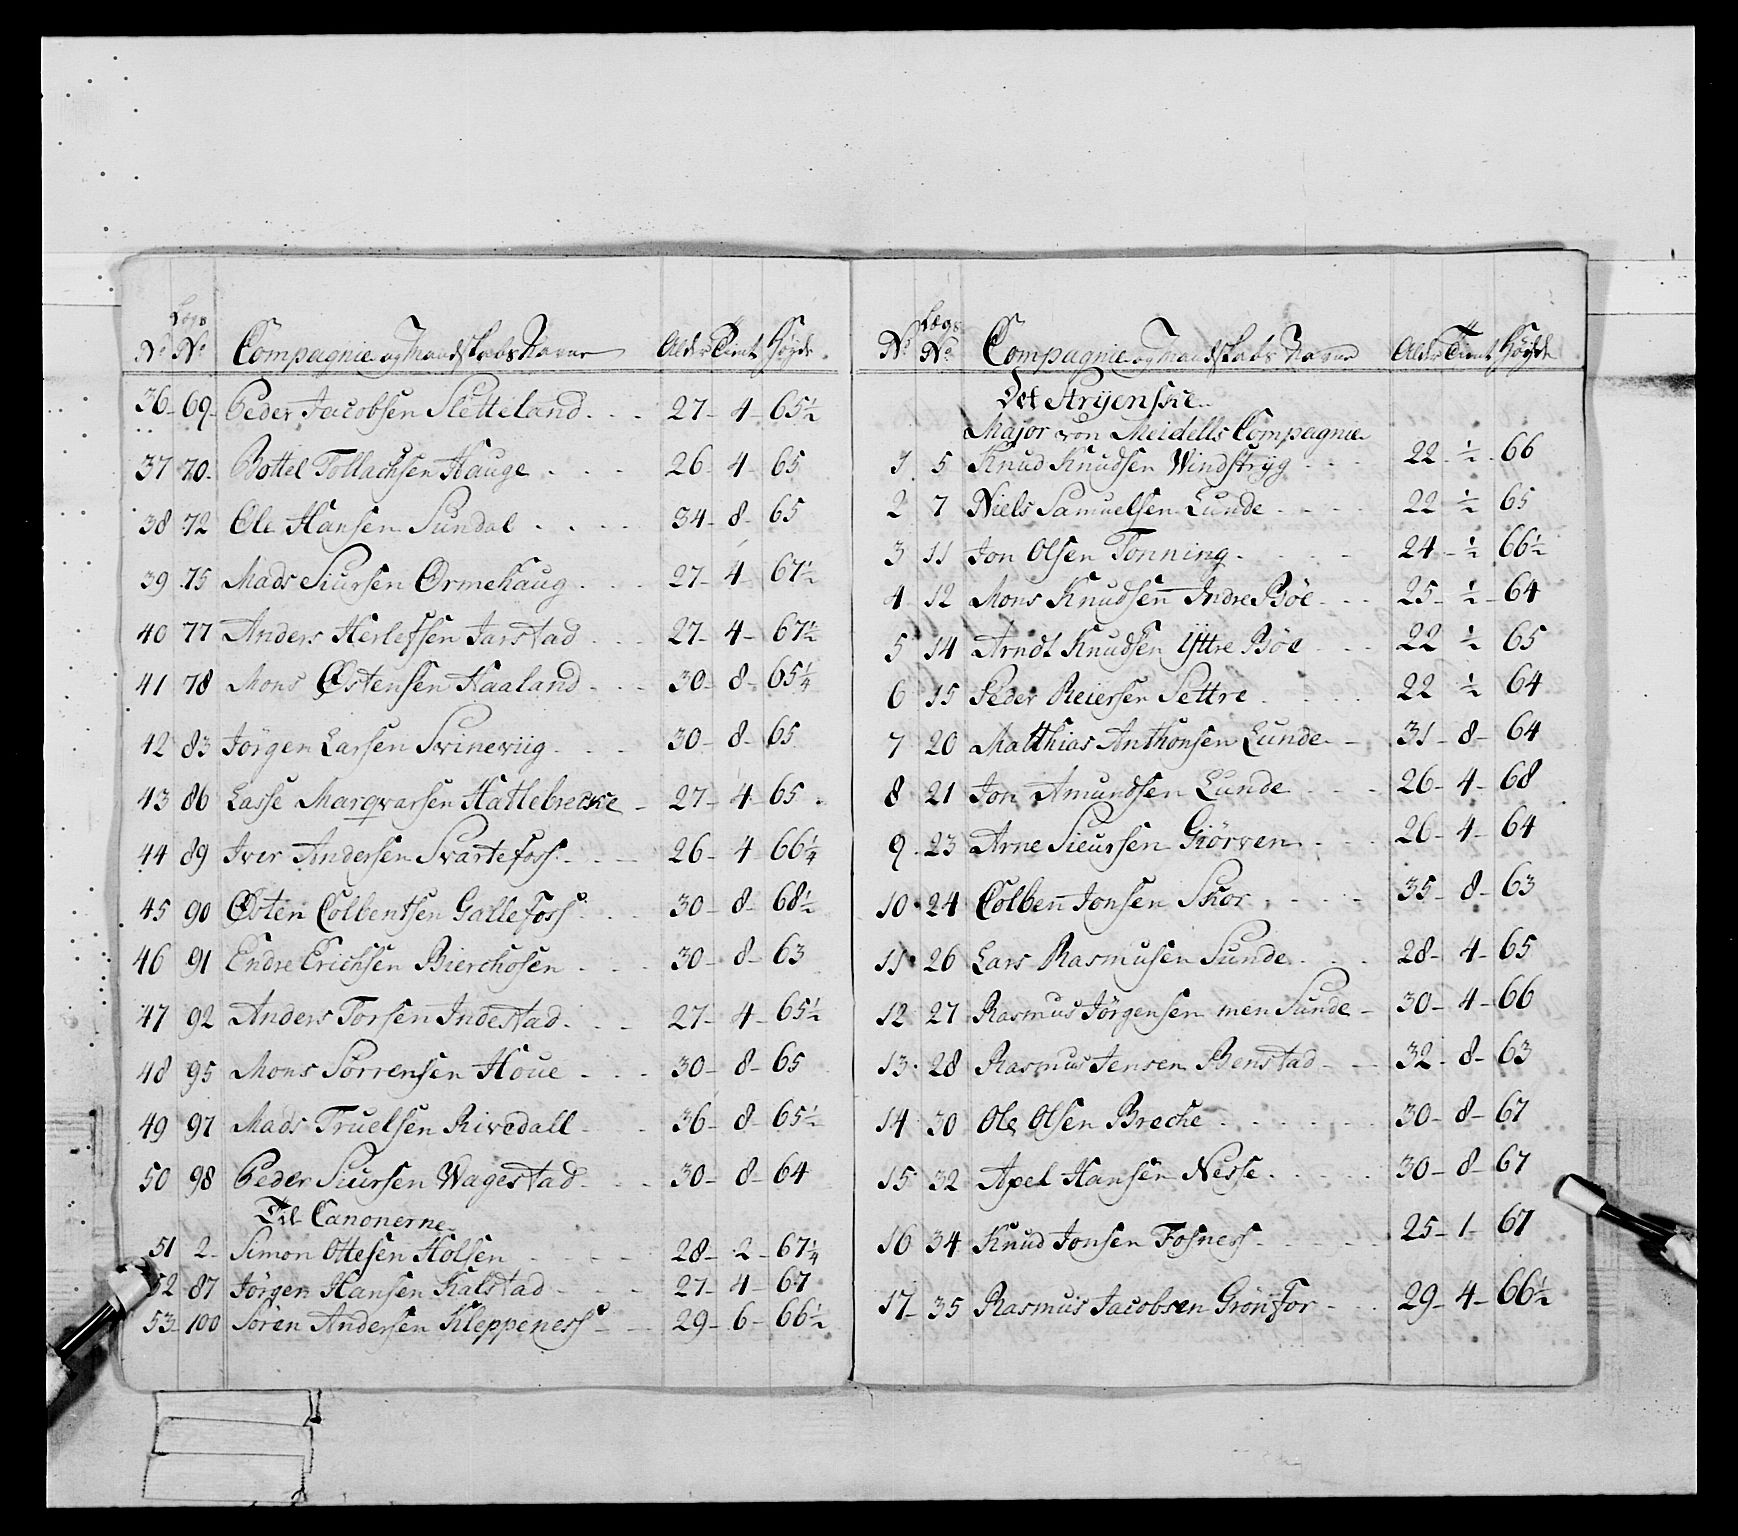 Lægs
No No Compagnie og Mandskabs Navne Alder Tient Høyde
36 69 Peder Jacobsen Sletteland 27 4 65½
37 70 Bottel Tollachsen Hauge 26 4 65
38 72 Ole Hansen Sundal 34 8 65
39 75 Mads Siursen Ormehaug 27 4 67½
40 77 Anders Herlefsen Jarstad 27 4 67½
41 78 Mons Østensen Haaland 30 8 65¼
42 83 Jörgen Larsen Svineviig 30 8 65
43 86 Lasse Marqvarsen Hattlebrecke 27 4 65
44 89 Iver Andersen Svartefoss 26 4 66¼
45 90 Østen Colbentsen Gallefoss 30 8 68½
46 91 Endre Erichsen Bierchosen 30 8 63
47 92 Anders Torsen Indestad 27 4 65½
48 95 Mons Sörrensen Houe 30 8 65
49 97 Mads Truelsen Rivedall 36 8 65½
50 98 Peder Siursen Wagestad 30 8 64
Til Canonerne
51 2 Simon Ottesen Holsen 28 2 67¼
52 87 Jörgen Hansen Kalstad 27 4 67
53 100 Sören Andersen Kleppeness 29 6 66½
Lægs
No No Compagnie og Mandskabs Navne Alder Tient Höyde
Det Stryenske
Major von Meidells Compagnie
1 5 Knud Knudsen Windstryg 22 ½ 66
2 7 Niels Samuelsen Lunde 22 ½ 65
3 11 Jon Olsen Tonning 24 ½ 66½
4 12 Mons Knudsen Indre Böe 25 ½ 64
5 14 Arndt Knudsen Yttre Böe 22 ½ 65
6 15 Peder Reiersen Settre 22 ½ 64
7 20 Matthias Anthonsen Lunde 31 8 64
8 21 Jon Amundsen Lunde 26 4 68
9 23 Arne Sieursen Giörven 26 4 64
10 24 Colben Jonsen Skor 35 8 63
11 26 Lars Rasmusen Sunde 28 4 65
12 27 Rasmus Jörgensen men Sunde 30 4 66
13 28 Rasmus Jensen Benstad 32 8 63
14 30 Ole Olsen Breche 30 8 67
15 32 Apel Hansen Nesse 30 8 67
16 34 Knud Jonsen Fosness 25 1 67
17 35 Rasmus Jacobsen Grönfor 29 4 66½